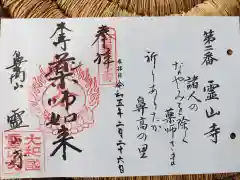 第二番 霊山寺
諸人の
なやみを除く
薬師さま
祈りあらたか
鼻高の里
奉拝
令和五年二月二十六日
本尊 薬師如来
鼻高山 霊山寺